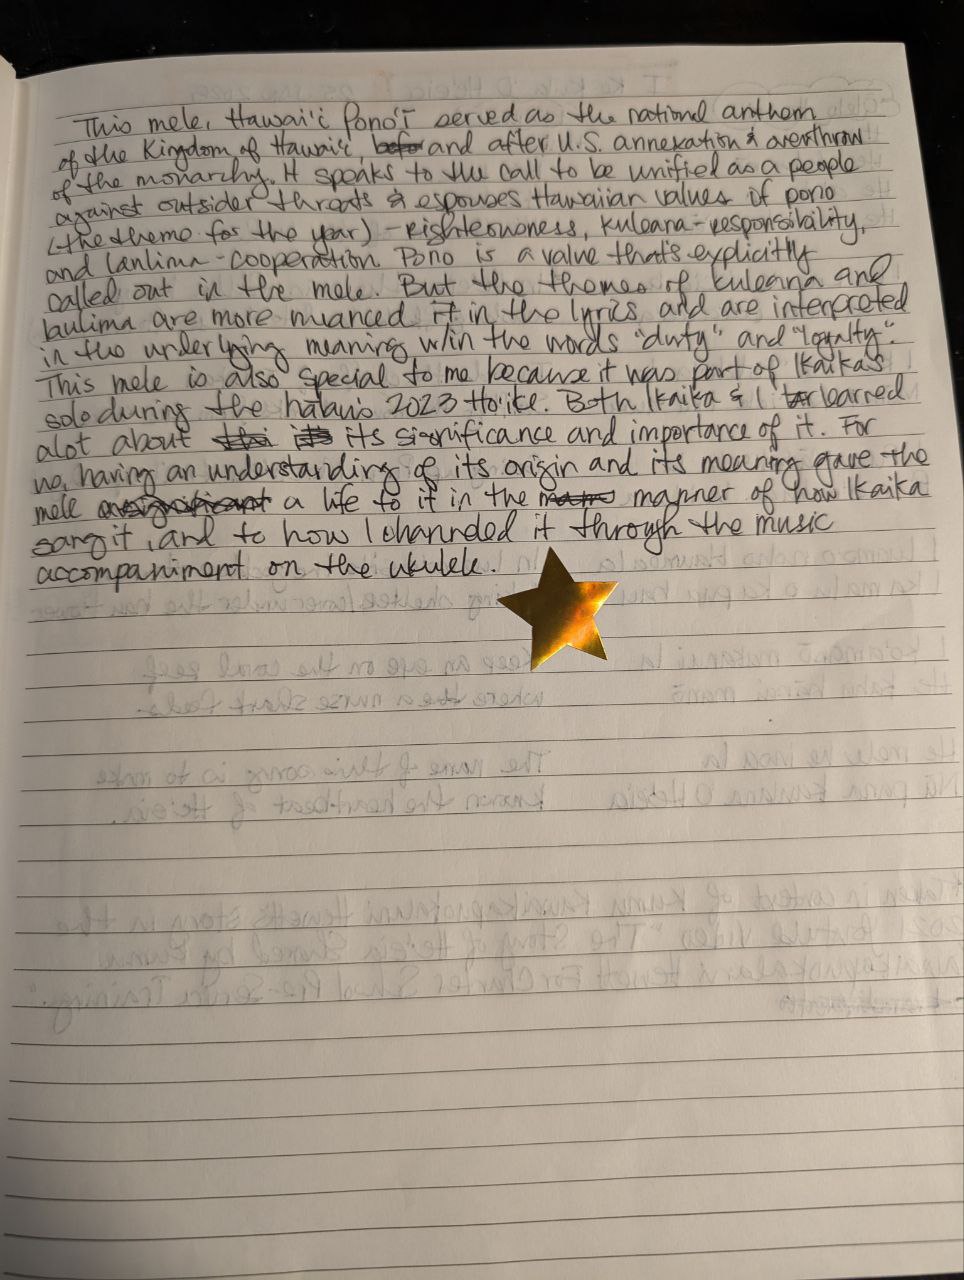 This mele, Hawai'i Pono'ī served as the national anthem
of the Kingdom of Hawai'i, and after U.S. annexation & overthrow
of the monarchy. It speaks to the call to be unified as a people
against outsider threats & espouses Hawaiian values of pono
(the theme for the year) - righteousness, kuleana - responsibility,
and lanlima - cooperation. Pono is a value that's explicitly
called out in the mele. But the themes of kuleana and
laulima are more nuanced in the lyrics and are interpreted
in the underlying meaning w/in the words "duty" and "loyalty".
This mele is also special to me because it was part of Ikaika's
solo during the hālau's 2023 Hō'ike. Both Ikaika & I learned
alot about its significance and importance of it. For
us, having an understanding of its origin and its meaning gave the
mele a life to it in the manner of how Ikaika
sang it, and to how I channeled it through the music
accompaniment on the ukulele.